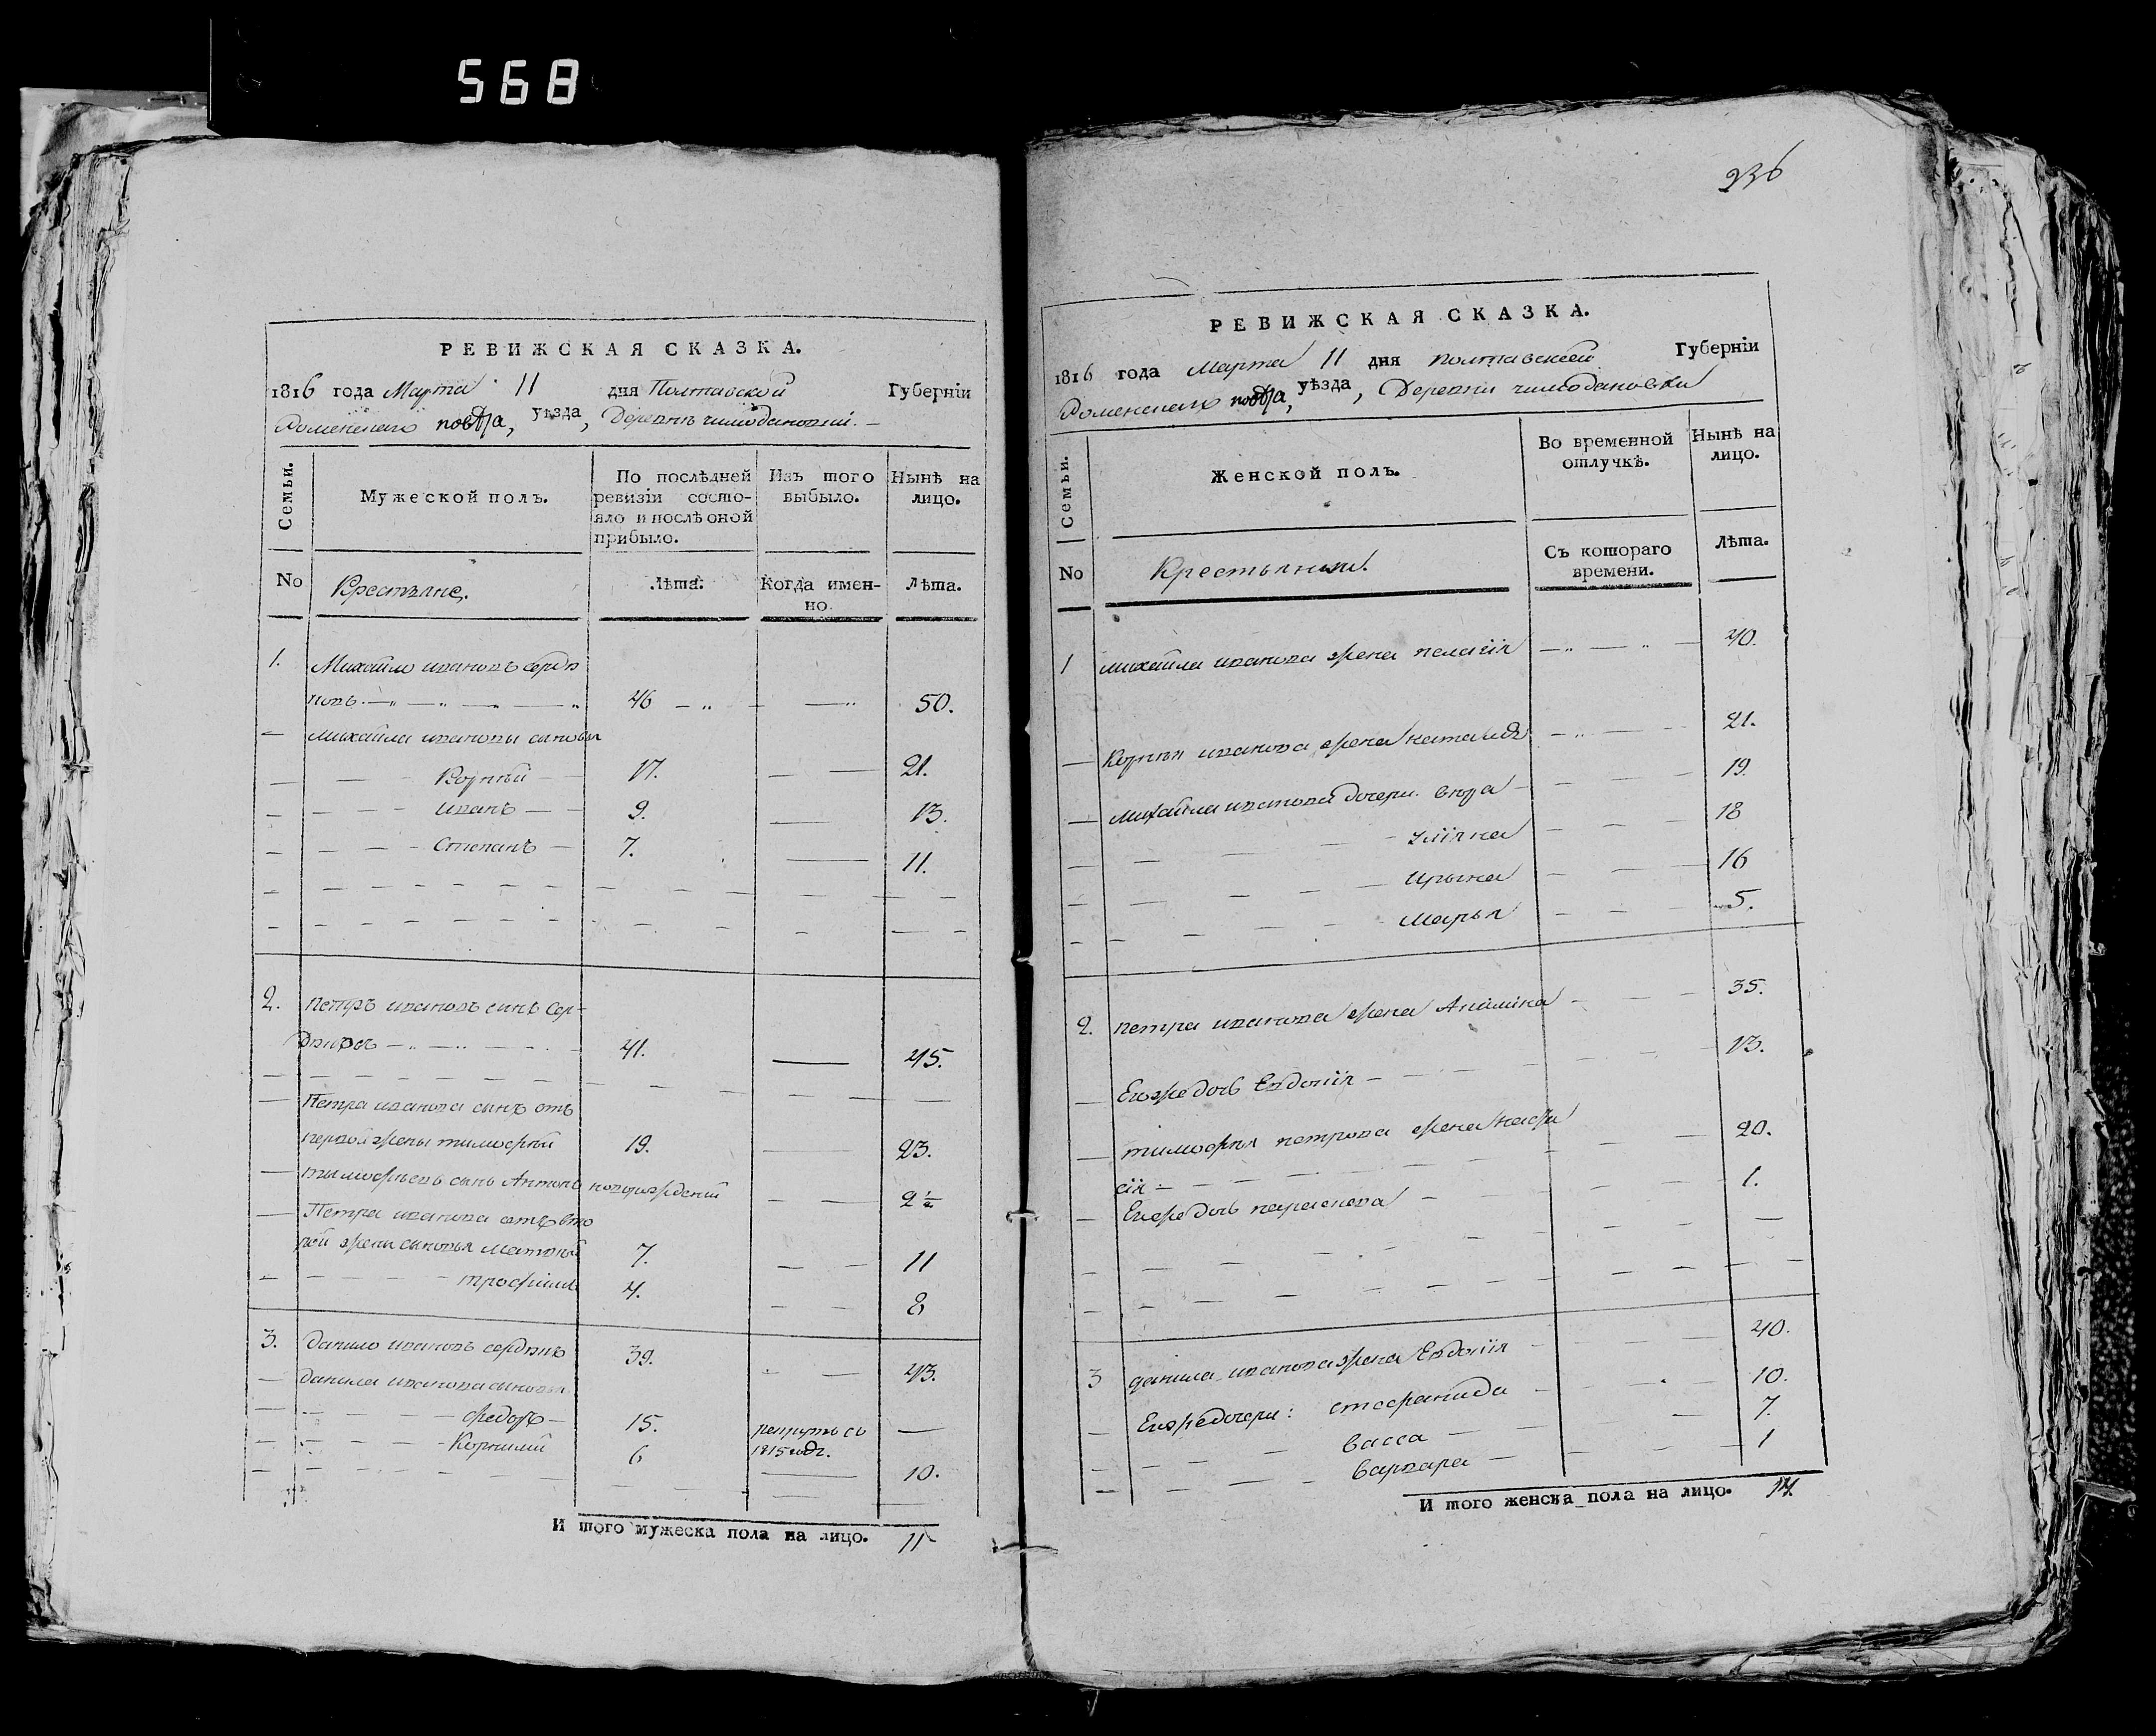 568
РЕВИЖСКАЯ СКАЗКА.
1816 года Марта 11 дня Полтавской Губерніи
Роменскаго повѣта, уѣзда, Деревнѣ чимодановки. —
Семьи.
Мужеской полъ.
По послѣдней ревизіи состо-
яло и послѣ оной прибыло.
Изъ того выбыло.
Нынѣ на лицо.
No
Крестьяне.
Лѣта.
Когда имен-
но.
Лѣта.
1. Михайло ивановъ серде
46 50.
Михайла ивановы сыновья
Корнѣй 17. 21.
иванъ 9. 13.
Степанъ 7. 11.
2. петръ ивановъ синъ Сер-
41. 45.
Петра иванова синъ отъ
первой жены тимофѣй 19. 23.
тымофѣевъ синъ Антонъ новорожденій 2 ½
Петра иванова отъ вто
рой жени сыновья Матвѣй 7. 11
трофимъ 4. 8
3. данило ивановъ 39. 43.
данила иванова сыновья
федоръ 15. рекрутъ съ —
1815 году.
Корнилий 6 10.
И того мужеска пола на лицо. 11
236
РЕВИЖСКАЯ СКАЗКА.
1816 года Марта 11 дня полтавской Губерніи
Роменскаго повѣта, уѣзда, Деревни чимодановки
Семьи.
Женской полъ.
Во временной отлучкѣ.
Нынѣ на лицо.
No
Крестьянки.
Съ котораго времени.
Лѣта.
1 михайла иванова жена пелагія 40.
Корнѣя иванова жена наталія 21.
михайла иванова дочери 19.
уліяна 18
ирына 16
Марья 5.
2. петра иванова жена Акилина 35.
Егожедочь Евдокія 13.
тимофѣя петрова жена наста
сія 20.
Егожедочь параскева 1.
3 данила иванова жена Евдокія 40.
Егожедочери: стефанида 10.
васса 7.
варвара 1
И того женска пола на лицо. 14.